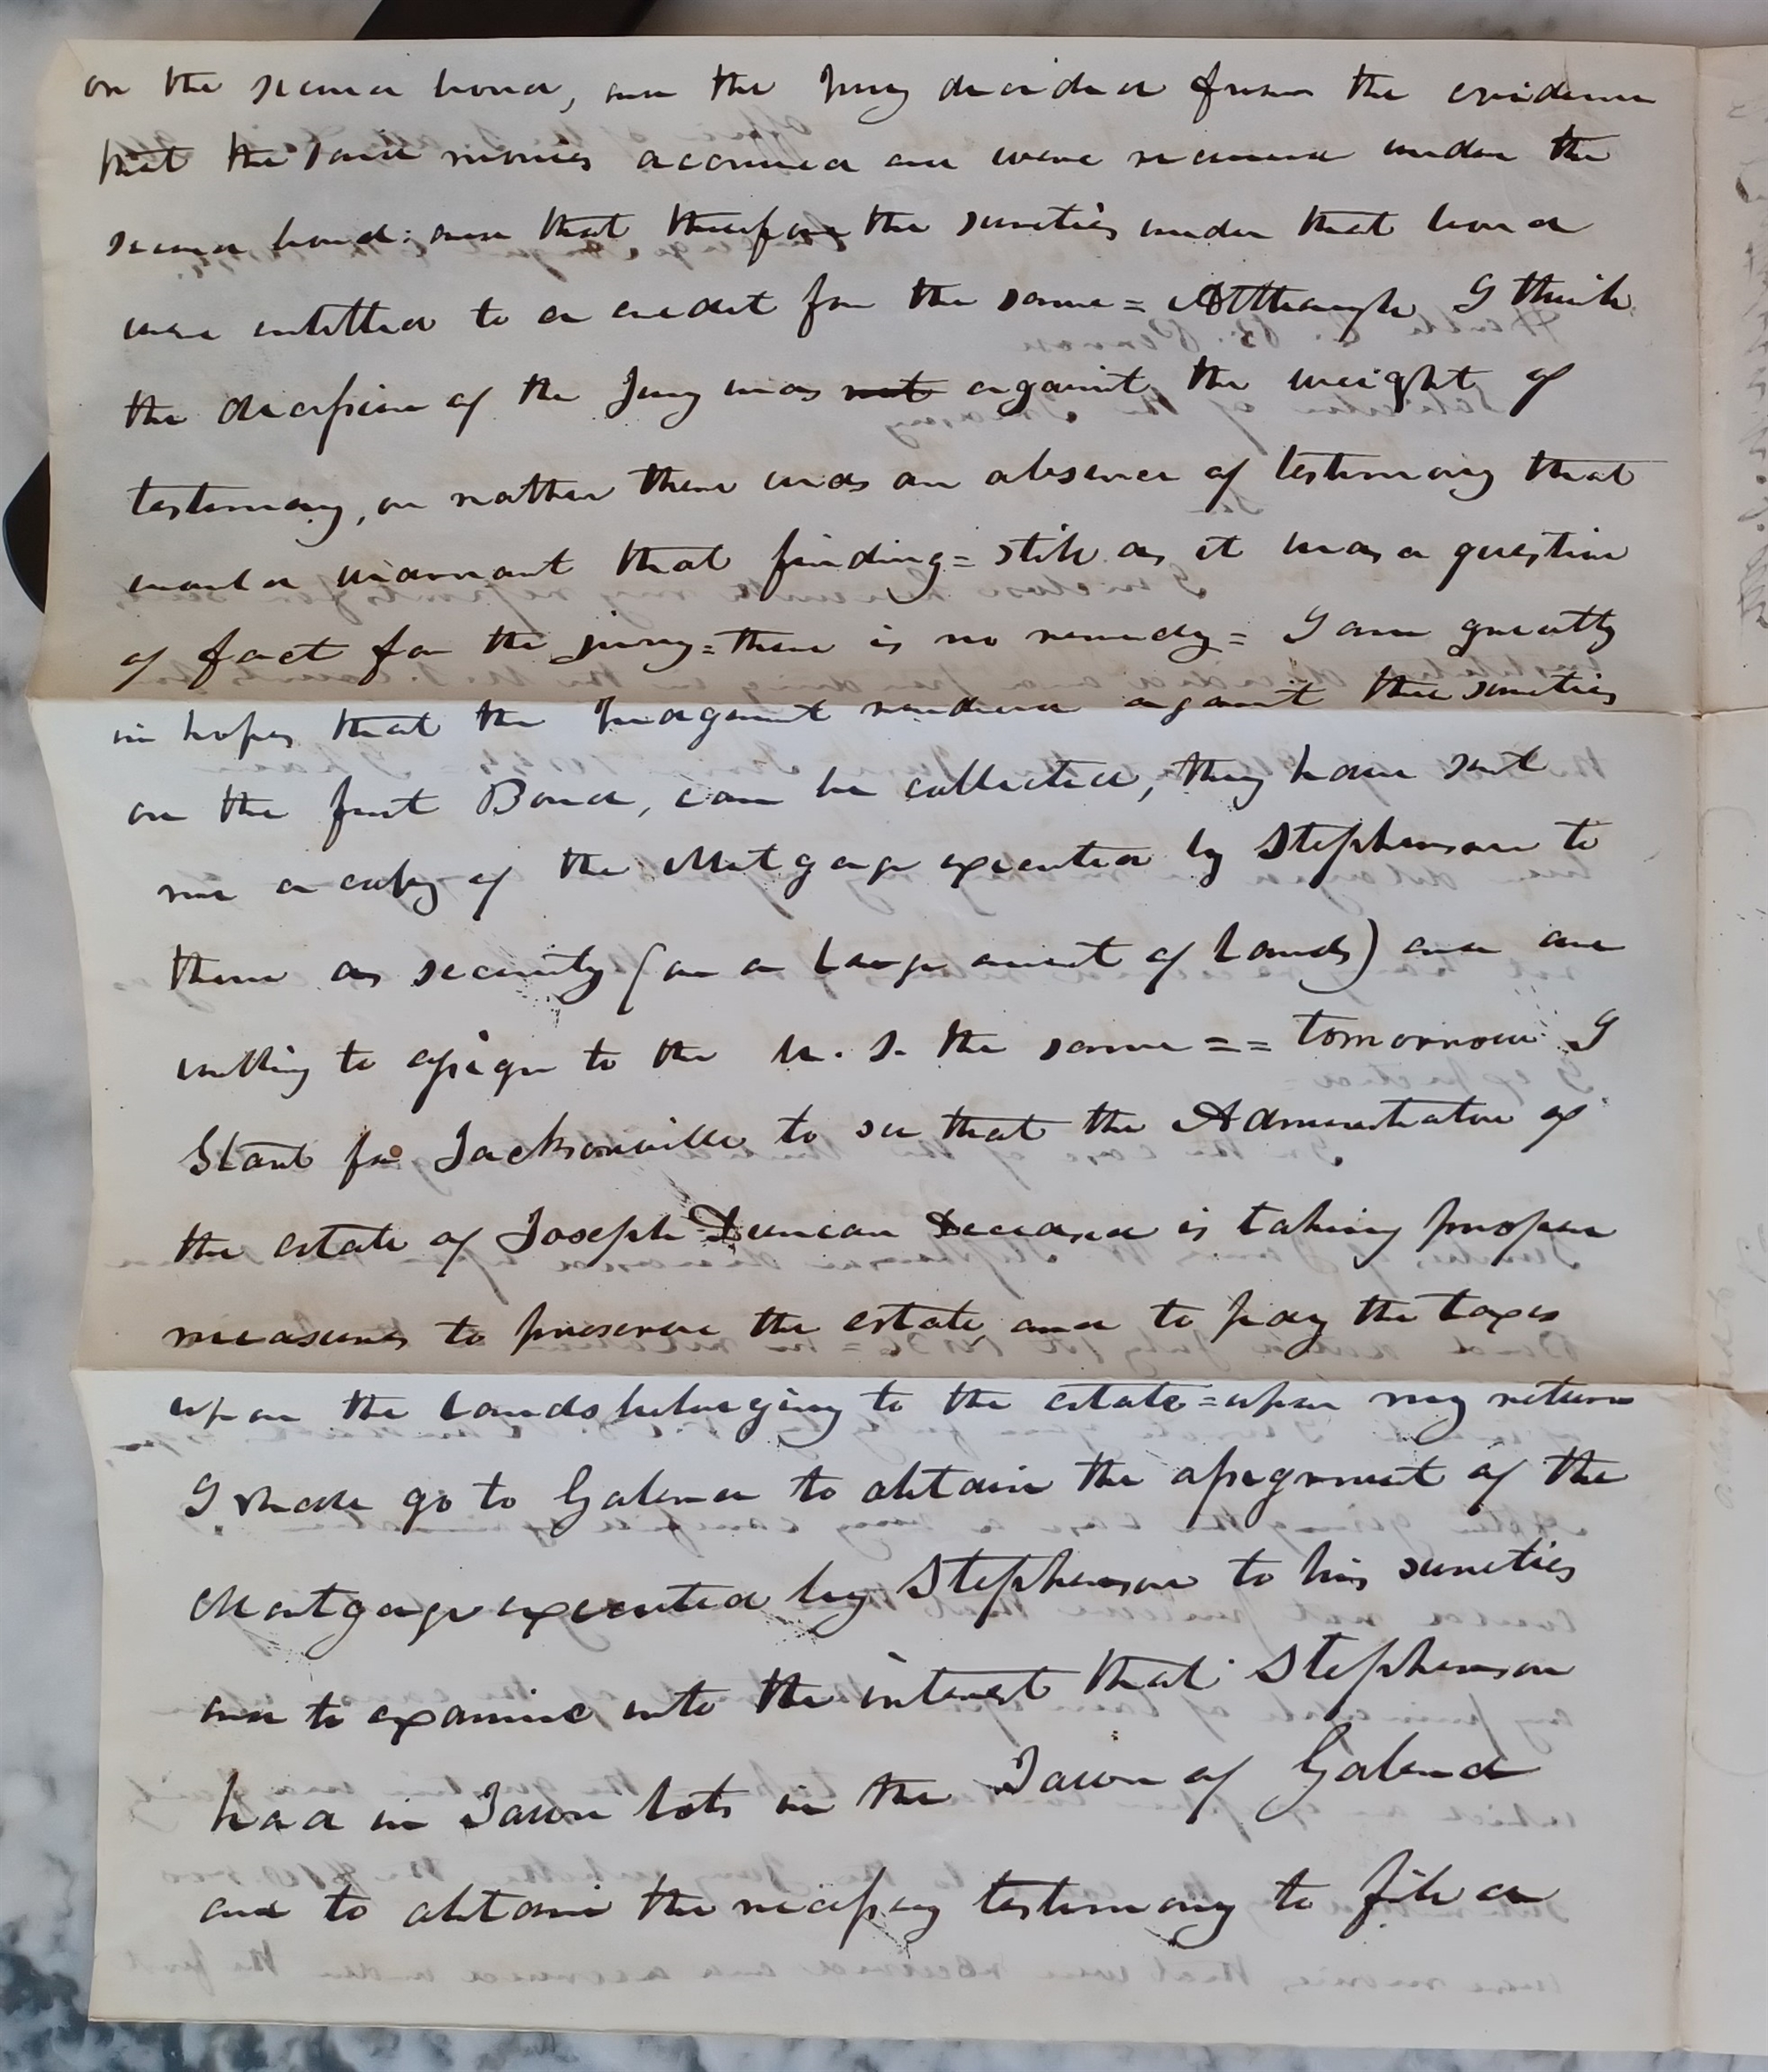 on the second bond, and the Jury decided from the evidence
that the said monies accrued and were received under the
second bond: and that therefore the sureties under that bond
were intitled to a credit for the same = Allthough I think
the decission of the Jury was not against the weight of
testimony, or rather there was an absence of testimony that
would warrant that finding = still as it was a question
of fact for the jury = there is no remedy = I am greatly
in hopes that the Judgment rendered against the sureties
on the first Bond, can be collected, they have sent
me a copy of the Mortgage executed by Stephenson to
them as security (on a large amount of Lands) and are
willing to assign to the U. S. the same = = tomorrow I
Start for Jacksonville to see that the Administrator of
the estate of Joseph Duncan Deceased is taking proper
measures to preserve the estate and to pay the taxes
upon the Lands belonging to the estate = upon my return
I shall go to Galena to obtain the assignment of the
Mortgage executed by Stephenson to his sureties
and to examine into the interest that Stephenson
had in Town lots in the Town of Galena
and to obtain the necessary testimony to file a